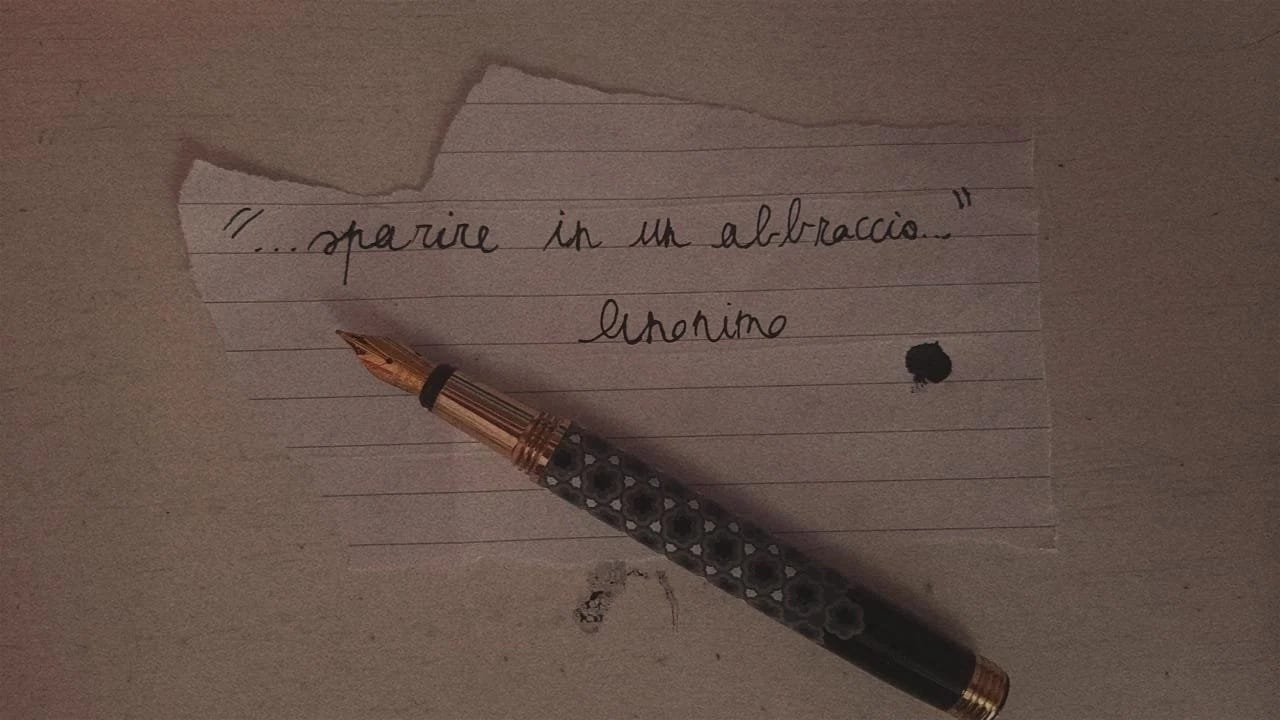 "...sparire in un abbraccio..."
Anonimo